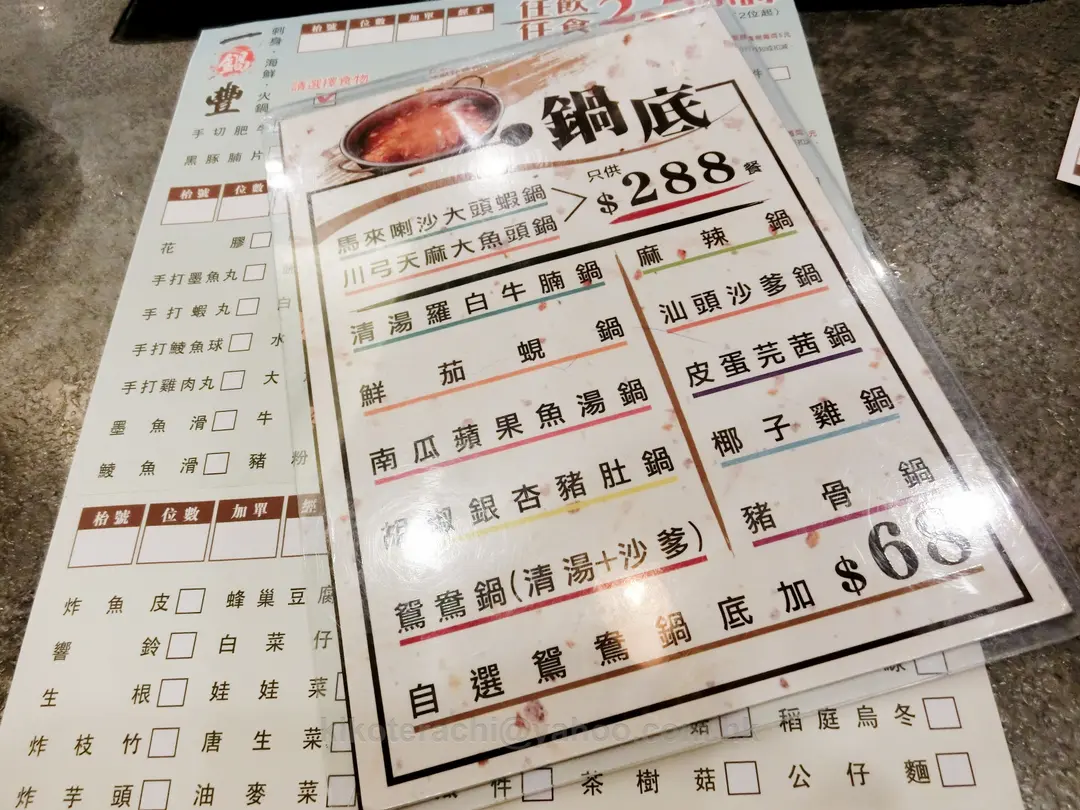 鍋底
只供
$288餐
馬來喇沙大頭蝦鍋
川弓天麻大魚頭鍋
清湯羅白牛腩鍋
鮮茄蜆鍋
南瓜蘋果魚湯鍋
胡椒銀杏豬肚鍋
鴛鴦鍋(清湯+沙爹)
麻辣鍋
汕頭沙爹鍋
皮蛋芫茜鍋
椰子雞鍋
豬骨鍋
自選鴛鴦鍋底加$68
一鍋豐
刺身·海鮮·火鍋
枱號 位數 加單 經手
任飲
任食
(2位起)
請選擇食物
手切肥牛
黑豚腩片
枱號 位數
花膠
手打墨魚丸
手打蝦丸
手打鯪魚球
手打雞肉丸
墨魚滑
鯪魚滑
白
水
大
牛
豬粉
枱號 位數 加單
炸魚皮 蜂巢豆腐
響鈴 白菜仔
生根 娃娃菜
炸枝竹 唐生菜
炸芋頭 油麥菜
稻庭烏冬
茶樹菇 公仔麵
件
kikoterachi@yahoo.com.hk